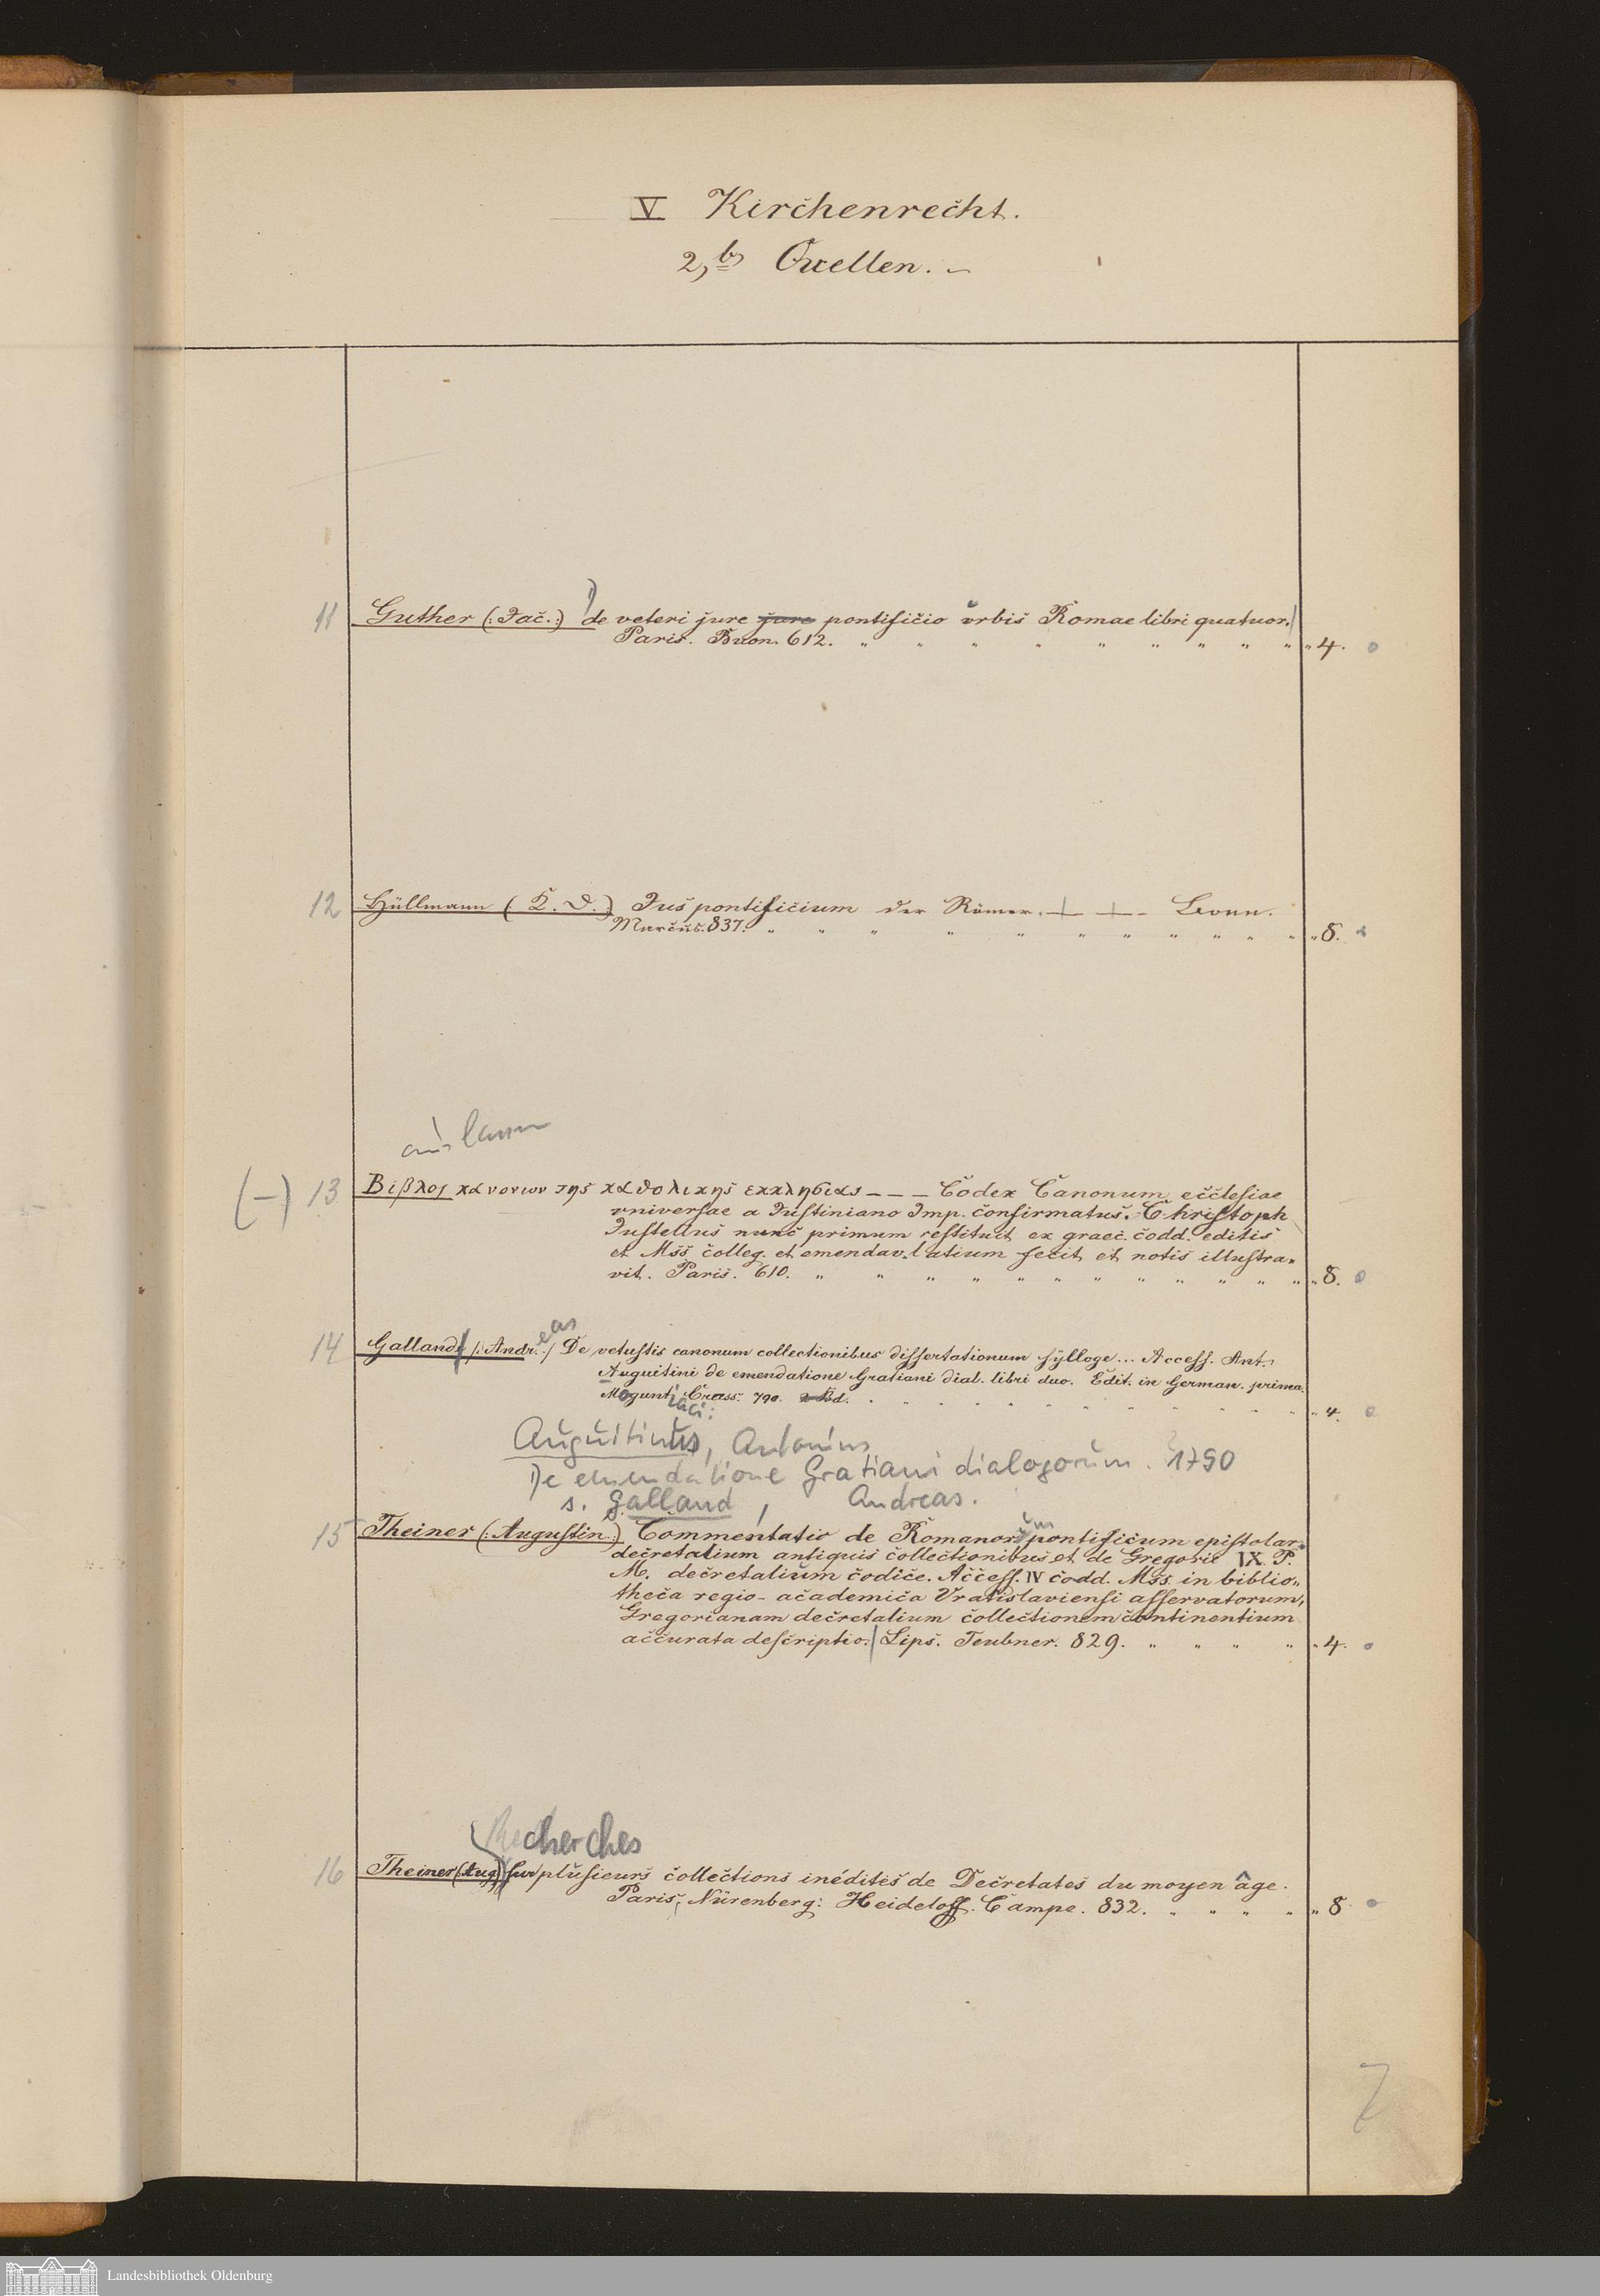 V Kirchenrecht.
2, b, Quellen. –
11 Guther (: Jac. :) de veteri jure jure pontificio urbis Romae libri quatuor.
Paris. Buon. 612. " " " " " " " " " " 4.
12 Hüllmann (K. D.) Jus pontificium der Römer. – – Bonn.
Marcus. 837. " " " " " " " " " " " " 8.
(–) 13 Βιβλος κανονων της καθολικης εκκλησιας – – – Codex Canonum ecclesiae
universae a Justiniano Imp. confirmatus. Christoph
Justellus nunc primum restituit ex graec. codd. editis
et Mss. colleg. et emendav. latium fecit et notis illustra=
vit. Paris. 610. " " " " " " " " " " " " " 8.
14 Galland /: Andreas :/ De vetustis canonum collectionibus dissertationum sylloge... Access. Ant.
Augustini de emendatione Gratiani dial. libri duo. Edit. in German. prima.
Moguntiaci: Crass. 790. 2 Bd. " " " " " " " " " 4.
Augustinus, Antonius
De emendatione Gratiani dialogorum. 1790
s. Galland, Andreas.
15 Theiner (: Augustin :) Commentatio de Romanorum pontificum epistolar.
decretalium antiquis collectionibus et de Gregorii IX. P.
M. decretalium codice. Access. IV codd. Mss. in biblio=
theca regio-academica Vratislaviensi asservatorum,
Gregorianam decretalium collectionem continentium
accurata descriptio. Lips. Teubner. 829. " " " " " 4.
Recherches
16 Theiner (Aug) sur plusieurs collections inédites de Decretates du moyen âge.
Paris, Nürenberg: Heideloff. Campe. 832. " " " " " 8
7
Landesbibliothek Oldenburg